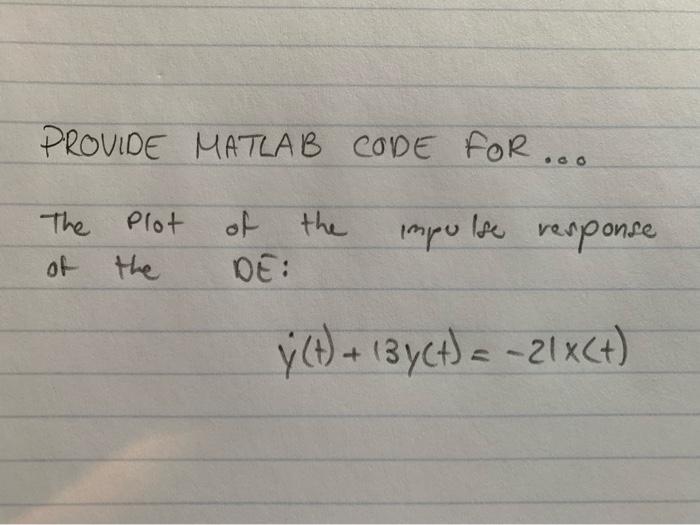 PROVIDE MATLAB CODE FOR...
The Plot of the impulse response
of the DE:
ẏ(t) + 13y(t) = -21x(t)